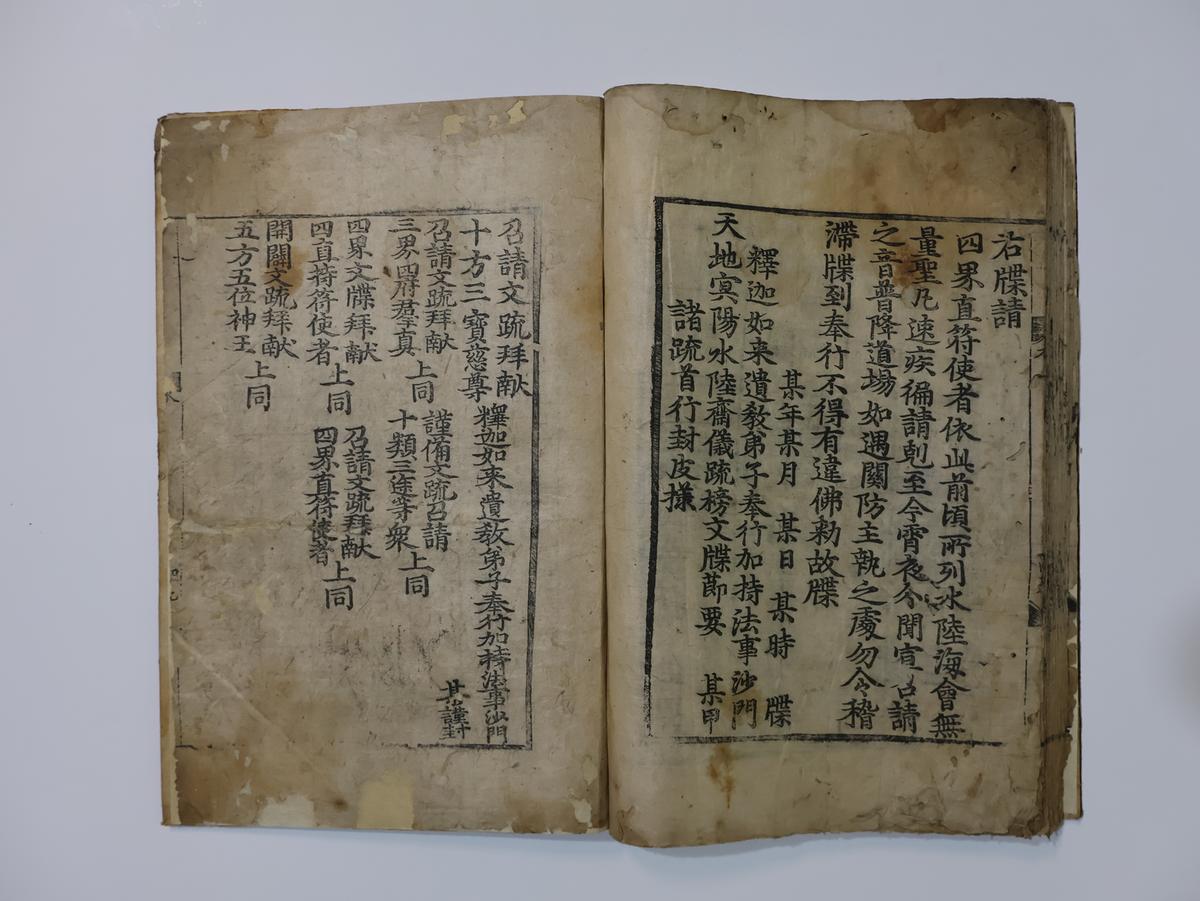 右牒請
四界直符使者依此前頃所列水陸海會無
量聖凡速疾徧請剋至今霄夜令聞宣召請
之音普降道場如遇關防主執之處勿令稽
滯牒到奉行不得有違佛勑故牒
某年某月 某日 某時 牒
釋迦如来遺教弟子奉行加持法事沙門
天地冥陽水陸齋儀疏榜文牒莭要 某甲
諸疏首行封皮㨾
召請文疏拜献
十方三寶慈尊 釋迦如来遺教弟子奉行加持法事沙門
某謹封
召請文疏拜献
三界四府羣真 上同
謹備文疏召請
十類三途等衆 上同
四界文牒拜献
四直持符使者 上同
召請文疏拜献
四界直符使者 上同
開關文疏拜献
五方五位神王 上同